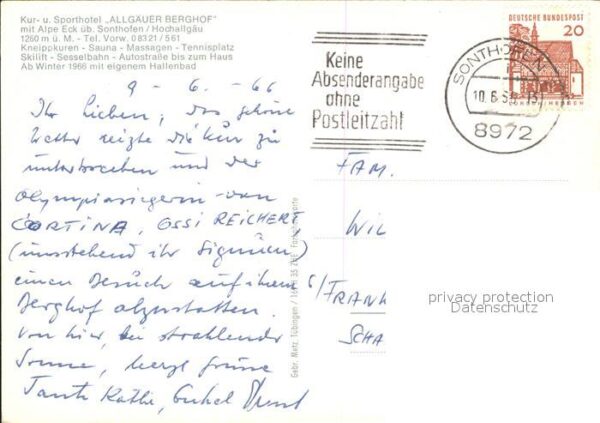 Kur- u. Sporthotel „ALLGÄUER BERGHOF"
mit Alpe Eck üb. Sonthofen / Hochallgäu
1260 m ü. M. - Tel. Vorw. 08321 / 561
Kneippkuren - Sauna - Massagen - Tennisplatz
Skilift - Sesselbahn - Autostraße bis zum Haus
Ab Winter 1966 mit eigenem Hallenbad
9 - 6. - 66
Ihr Lieben, das schöne
Wetter reizte die Kur zu
unterbrechen und der
Olympiasiegerin von
CORTINA, OSSI REICHERT,
(umstehend ihr Signum)
einen Besuch auf ihrem
Berghof abzustatten.
Von hier, bei strahlender
Sonne, herzl. Grüsse
Tante Käthe, Onkel
Keine
Absenderangabe
ohne
Postleitzahl
SONTHOFEN
10.6.
8972
DEUTSCHE BUNDESPOST
20
LORSCH/HESSEN
FAM.
WIL
6/FRANK
SCHA
Gebr. Metz, Tübingen /
privacy protection
Datenschutz